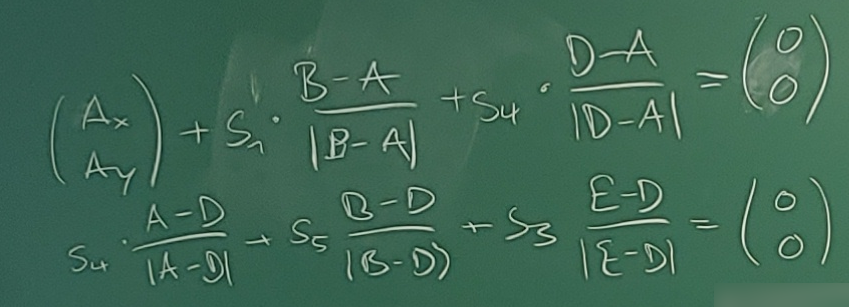 (A_x A_y) + S_1 · (B-A)/|B-A| + S_4 · (D-A)/|D-A| = (0 0)
S_4 · (A-D)/|A-D| + S_5 (B-D)/|B-D) + S_3 (E-D)/|E-D| = (0 0)